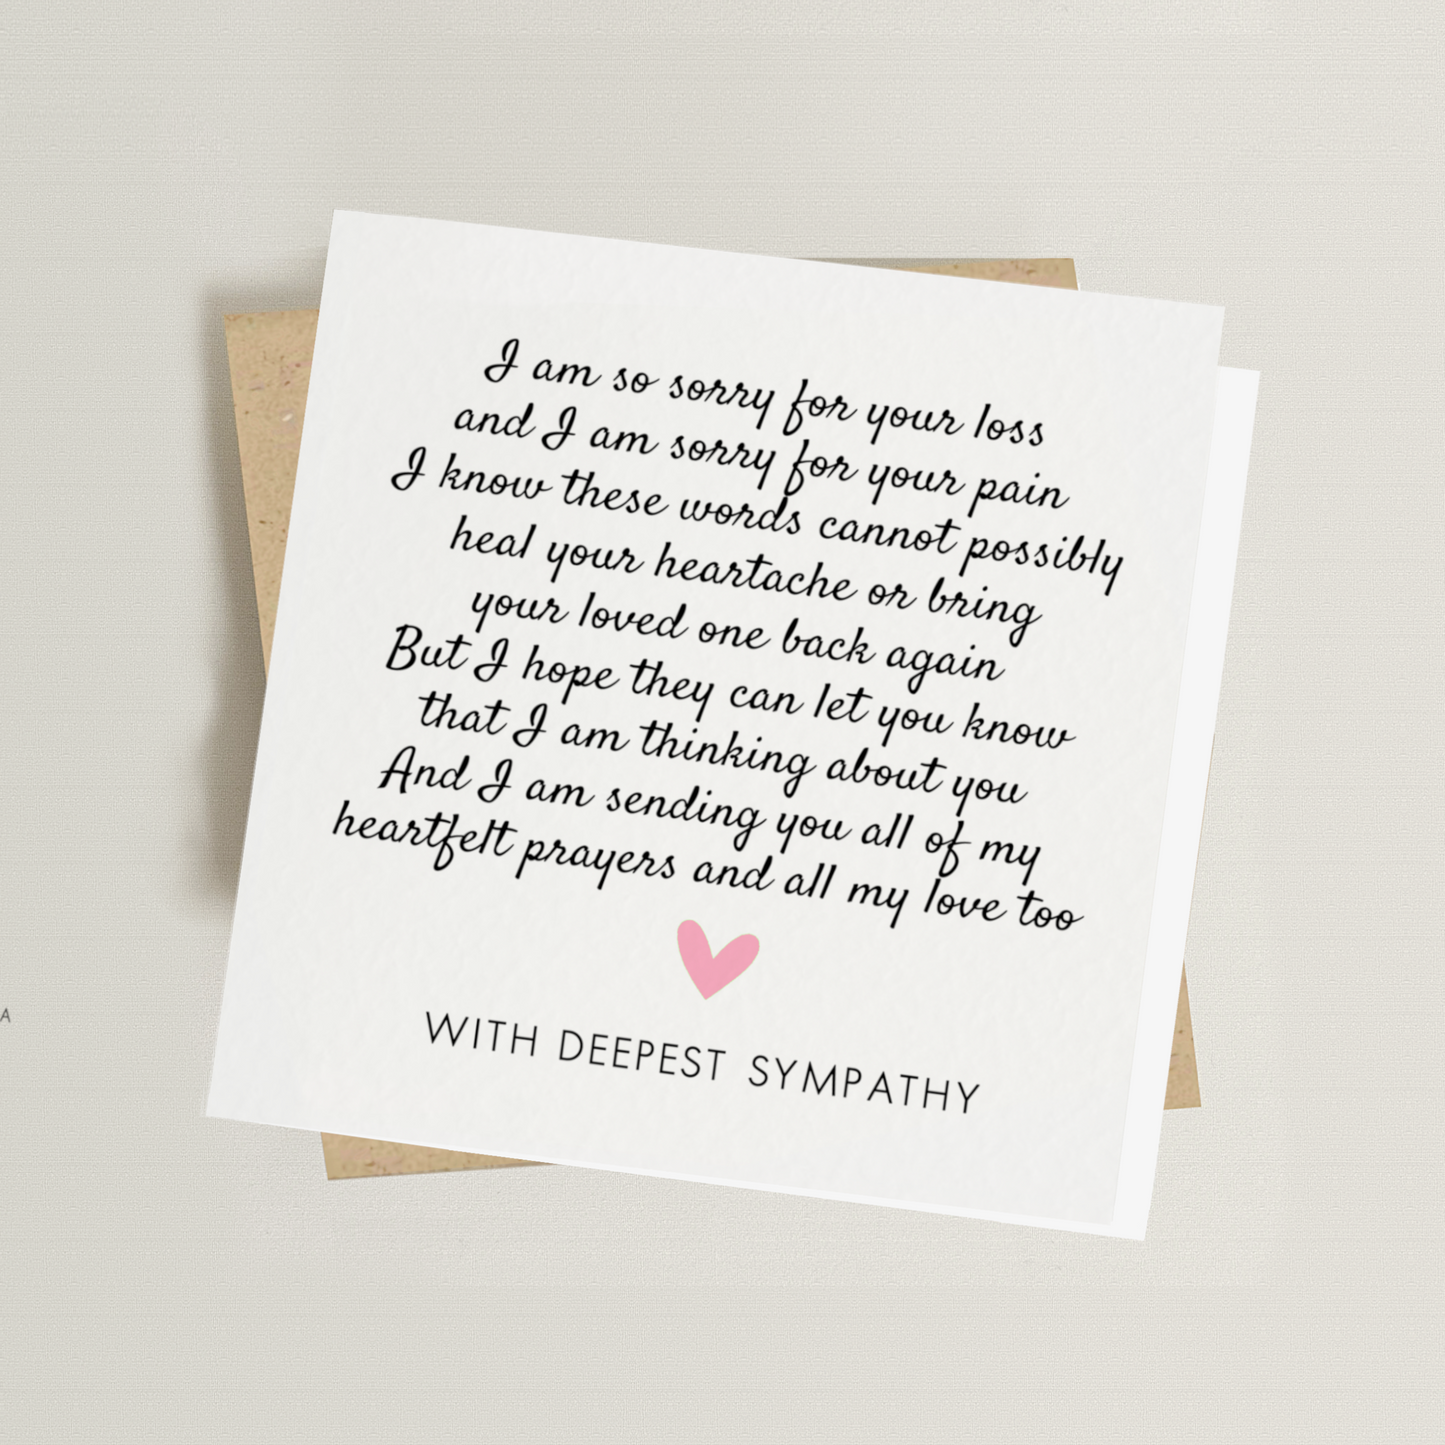 I am so sorry for your loss
and I am sorry for your pain
I know these words cannot possibly
heal your heartache or bring
your loved one back again
But I hope they can let you know
that I am thinking about you
And I am sending you all of my
heartfelt prayers and all my love too
WITH DEEPEST SYMPATHY
A